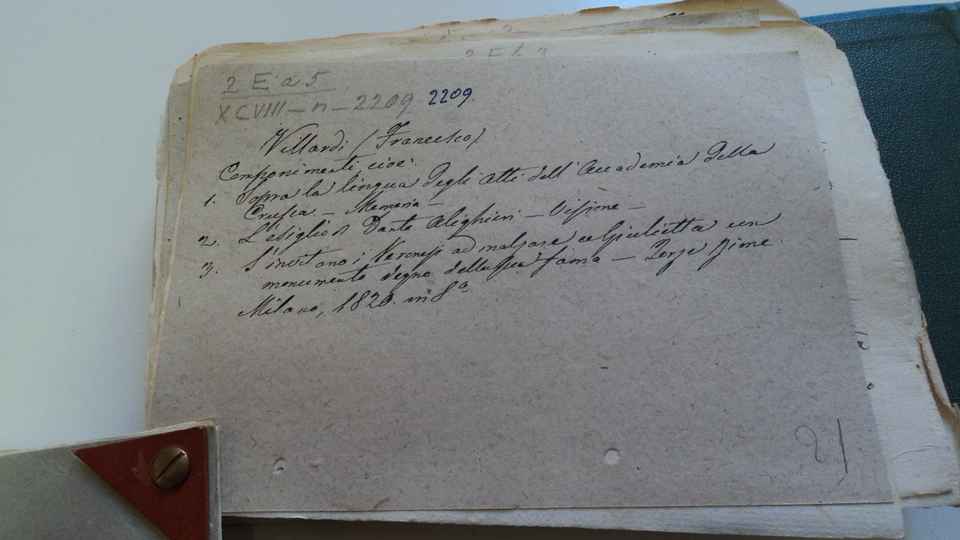 2 E a 5
XCVIII — n — 2209 2209.
Villardi (Francesco)
Componimenti cioè:
1. Sopra la lingua degli Atti dell'Accademia della
Crusca — Memoria —
2. L'esiglio di Dante Alighieri — Visione —
3. S'invitano i Veronesi ad alzare a Giulietta un
monumento degno della sua fama — Terze Rime.
Milano, 1820. in 8°
21